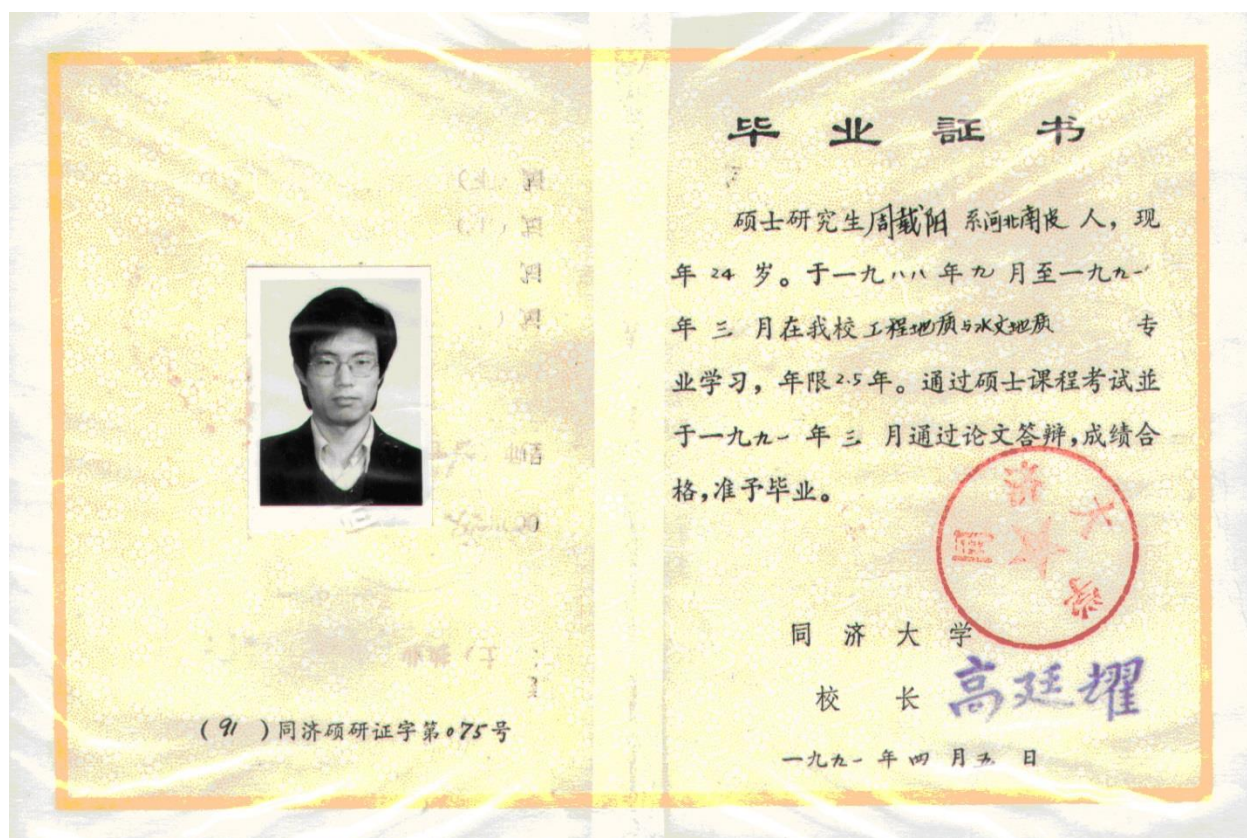 (91)同济硕研证字第075号
毕业証书
硕士研究生周载阳系河北南皮人，现
年24岁。于一九八八年九月至一九九一
年三月在我校工程地质与水文地质专
业学习，年限2.5年。通过硕士课程考试並
于一九九一年三月通过论文答辩，成绩合
格，准予毕业。
同济大学
校长 高廷耀
一九九一年四月五日